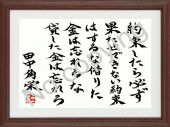 約束したら必ず
果たせできない約束
はするな借りた
金は忘れるな
貸した金は忘れろ
田中角栄